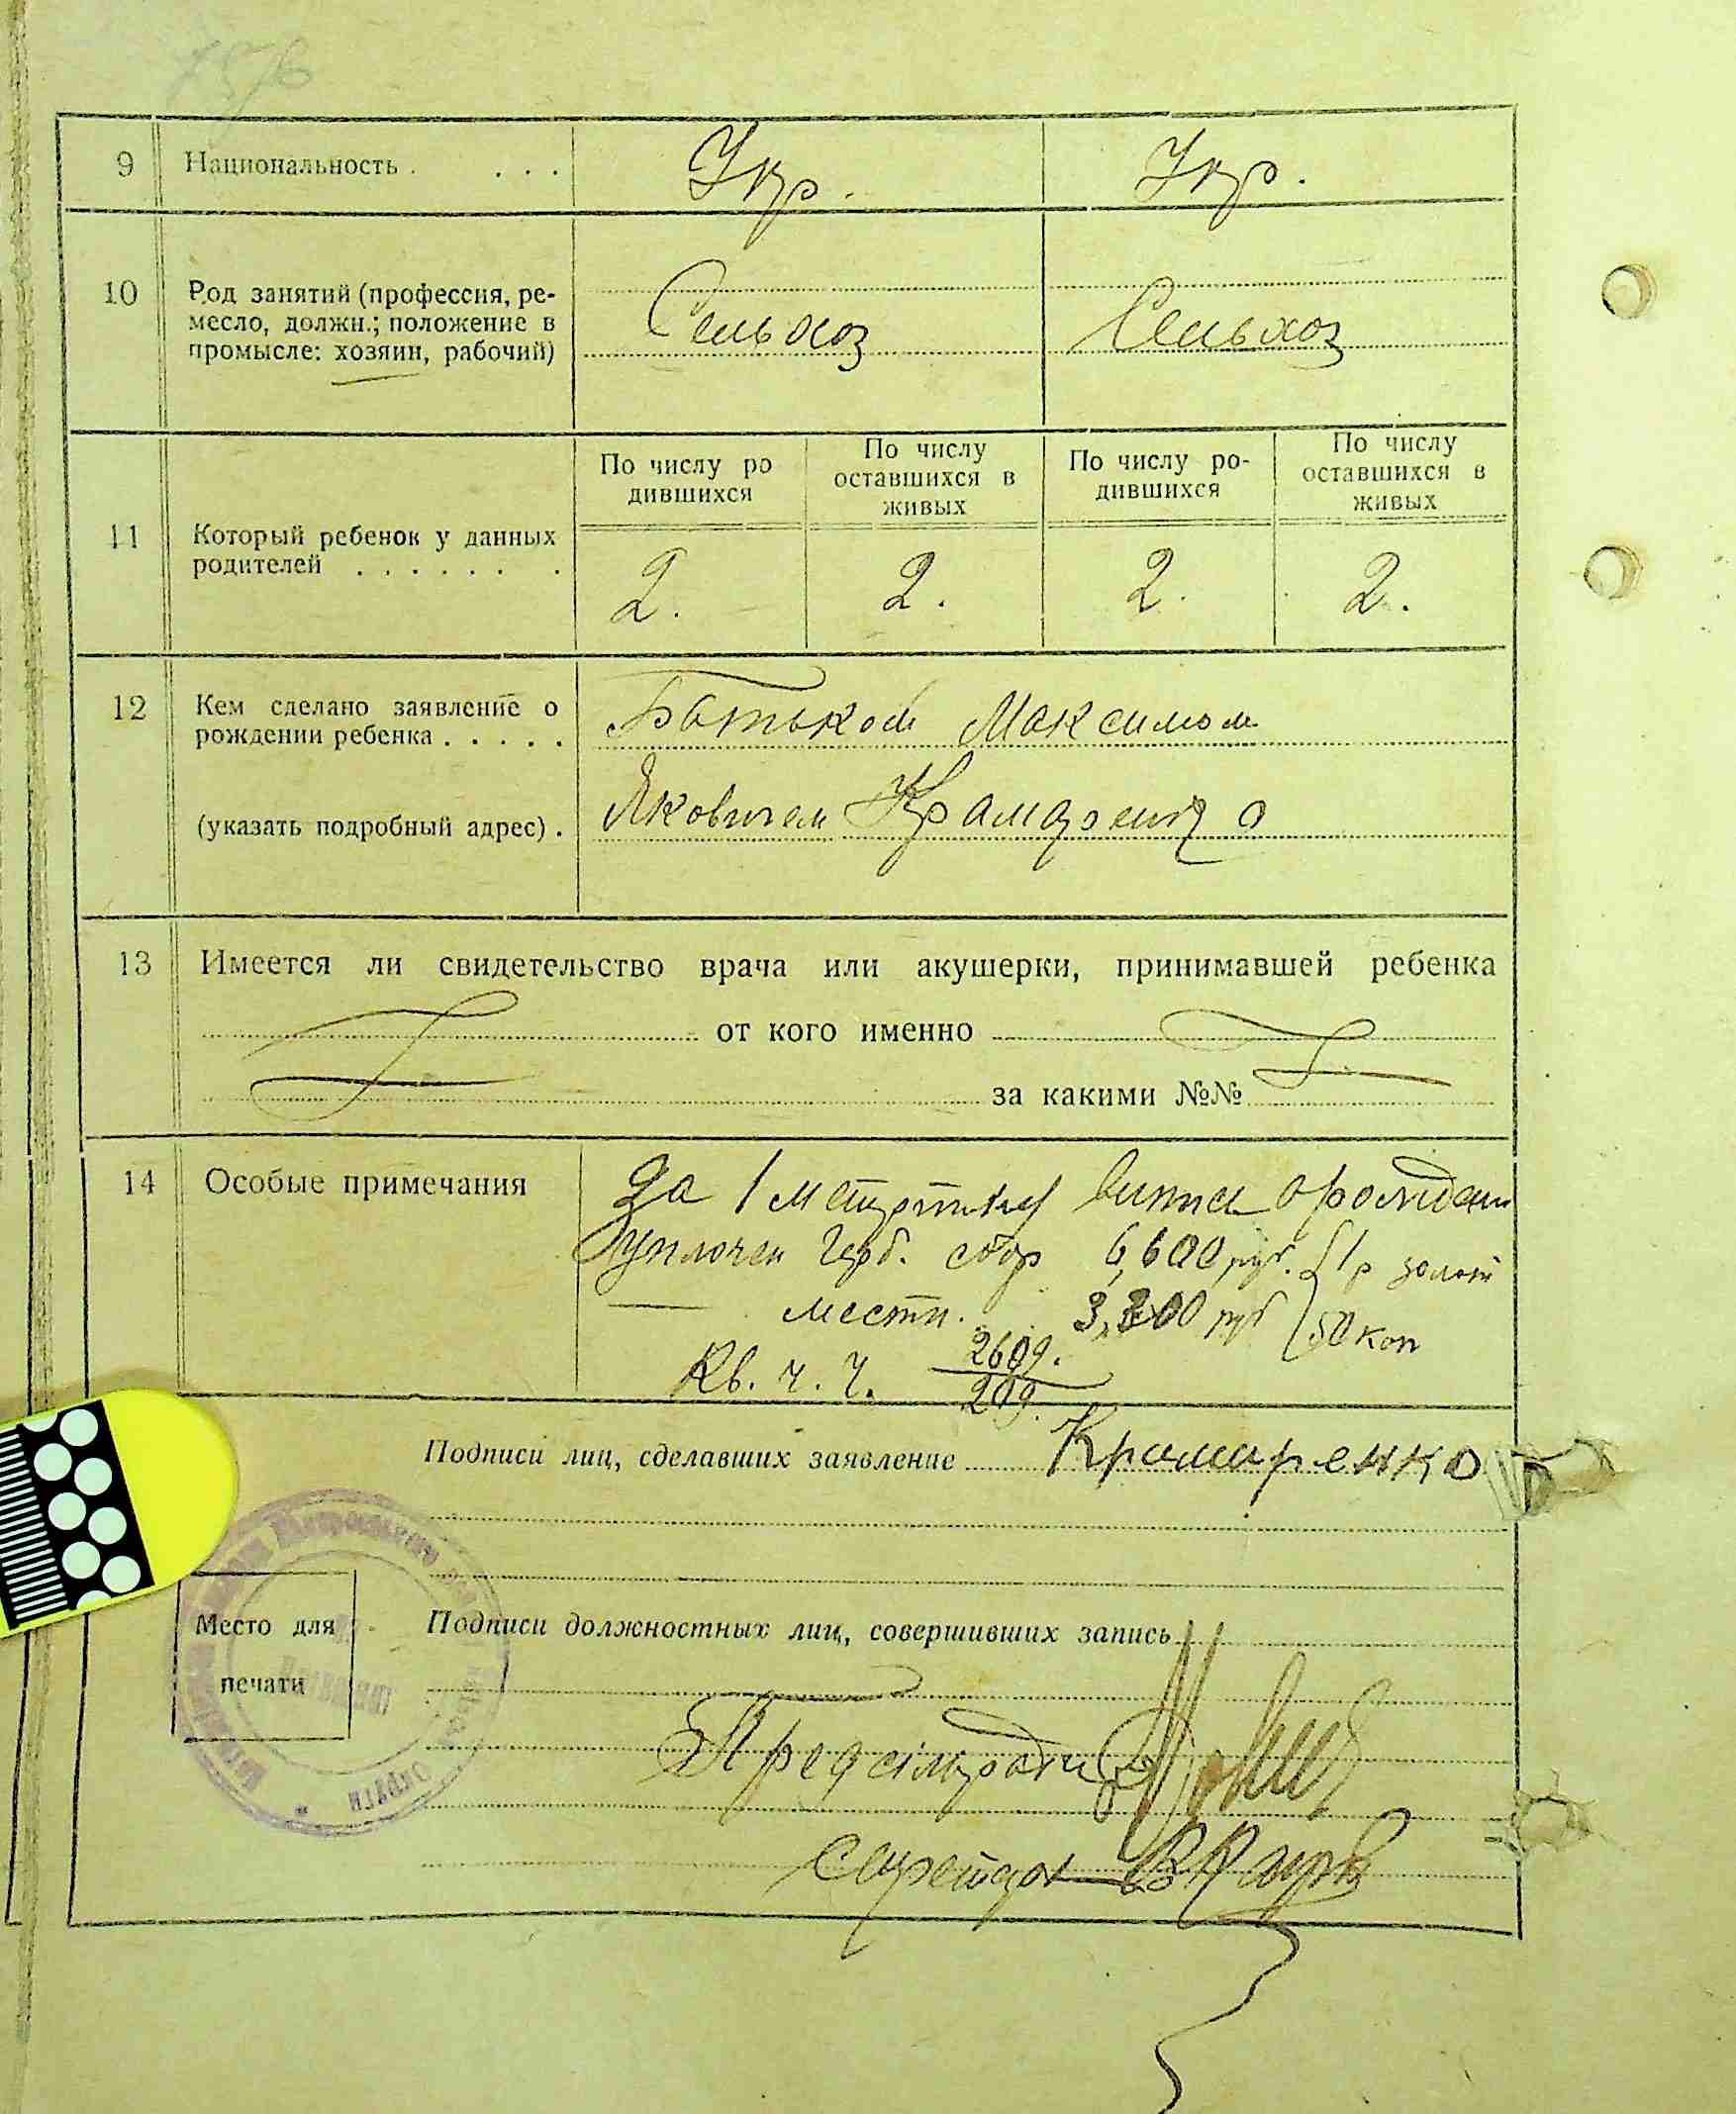 9 Национальность . . . . Укр. Укр.
10 Род занятий (профессия, ре-
месло, должн.; положение в
промысле: хозяин, рабочий)
Сельхоз Сельхоз
11 Который ребенок у данных
родителей . . . . . . .
По числу ро
дившихся
По числу
оставшихся в
живых
По числу ро-
дившихся
По числу
оставшихся в
живых
2. 2. 2. 2.
12 Кем сделано заявление о
рождении ребенка . . . . .
(указать подробный адрес) .
Батьком Максимом
Яковичем Крамаренко
13 Имеется ли свидетельство врача или акушерки, принимавшей ребенка
от кого именно
за какими №№
14 Особые примечания
За 1 метричну
уплочен герб. сбор 6,600 руб. 1 р золот
— местн. 3,300 руб 50 коп
Кв. ч. 2609.
209.
Подписи лиц, сделавших заявление Крамаренко
Место для
печати
Подписи должностных лиц, совершивших запись
Округи